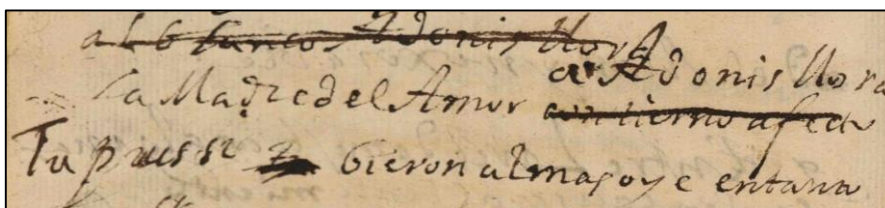 al blanco Adonis llora
a Adonis llora
La Madre del Amor con tierno afecto
Tu pues si bieron almas oye entanto